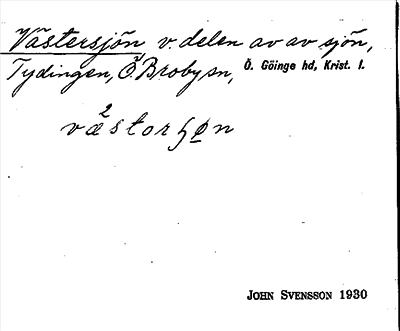 Västersjön, v. delen av av sjön,
Tydingen, Ö. Broby sn, Ö. Göinge hd, Krist. l.
2
væstorɧøn
JOHN SVENSSON 1930